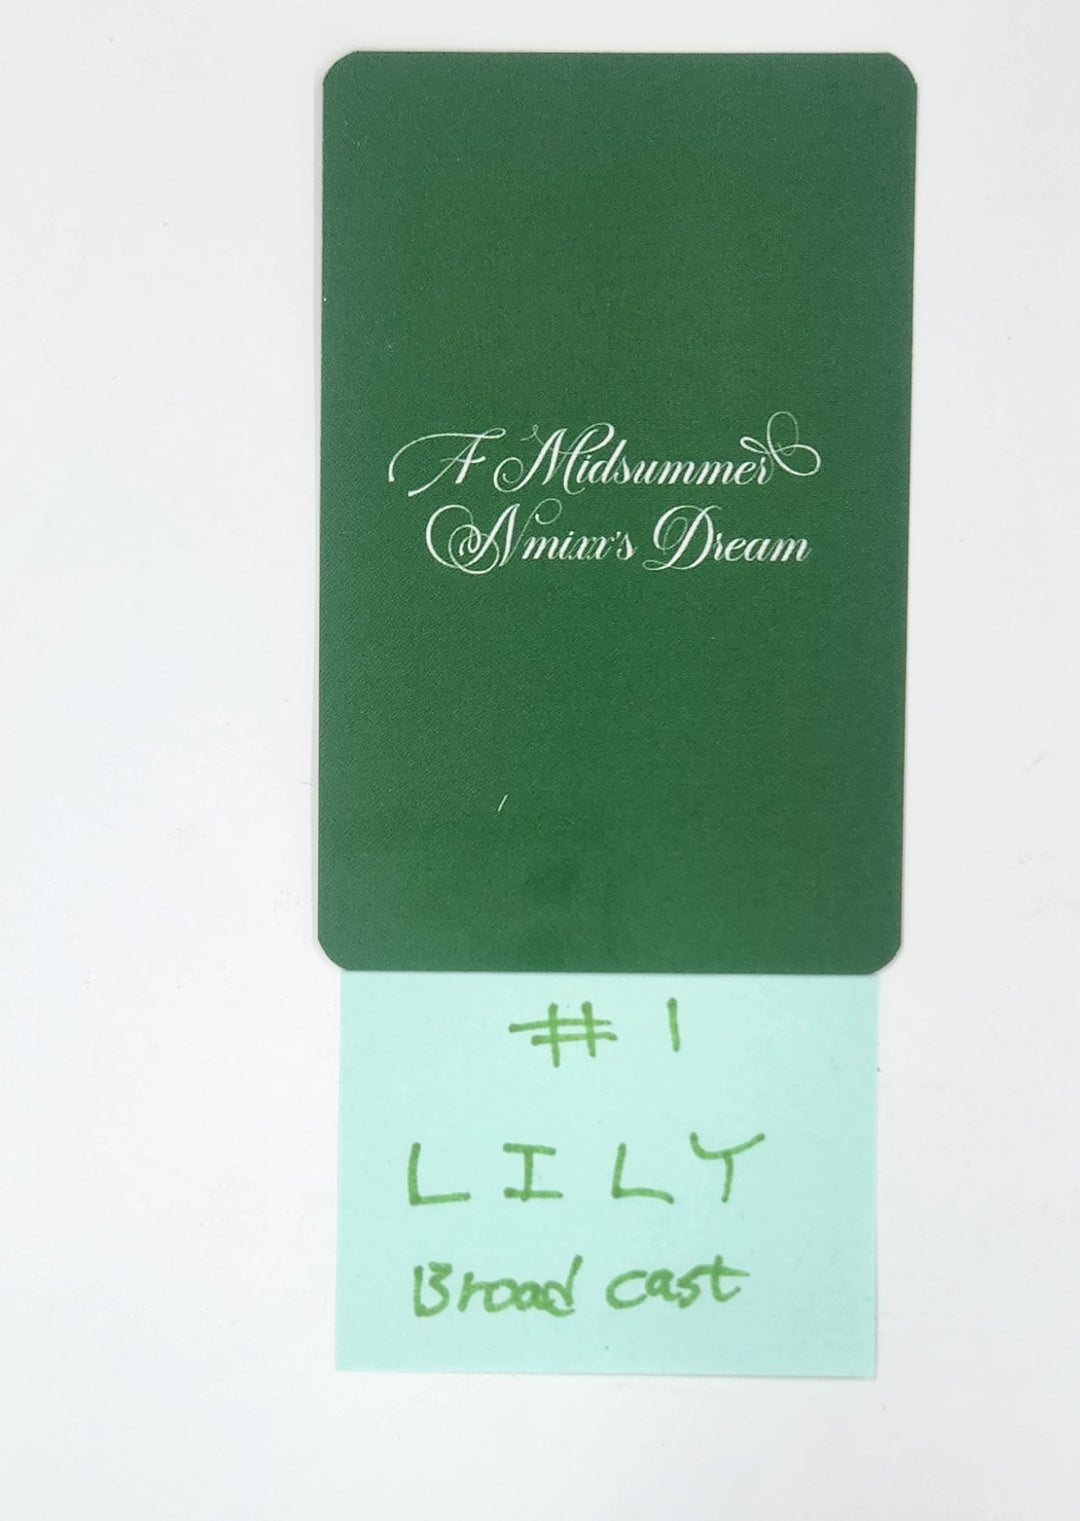 A Midsummer
Nmixx's Dream
#1
LILY
Broad cast